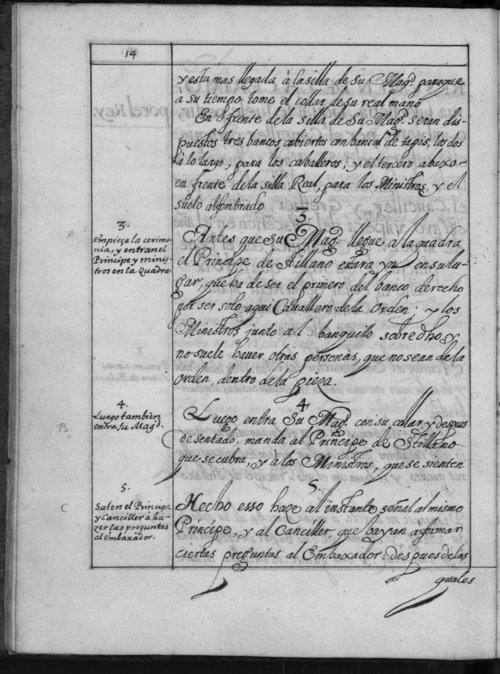 14
y esta mas llegada à la silla de su Mag.d para que
a su tiempo tome el collar de su real mano
En frente de la silla de Su Mag.d seran dis-
puestos tres bancos cubiertos con bancal de tapis, los dos
à lo largo, para los caballeros; y el tercero abaxo
en frente de la silla Real, para los Ministros, y el
suelo alfombrado
3.
empieza la cerimo-
nia, y entran el
Principe y minis-
tros en la Quadra
3
Antes que Su Mag.d llegue a la quadra
el Principe de Stillano estara ya en su lu-
gar; que ha de ser el primero del banco derecho
por ser solo aqui Cavallero de la Orden; y los
Ministros junto al banquito sobredho, y
no suele haver otras personas, que no sean de la
orden, dentro de la pieza.
A
4.
Luego tambien
entra su Mag.d
4
Luego entra Su Mag.d con su collar, y despues
de sentado, manda al Principe de Stillano
que se cubra, y a los Ministros, que se sienten
B
5.
Salen el Principe
y Canciller à ha-
zer las preguntas
al Embaxador.
5.
Hecho esso haze al instante señal al mismo
Principe, y al Canciller, que vayan a formar
ciertas preguntas al Embaxador: despues de las
C
quales